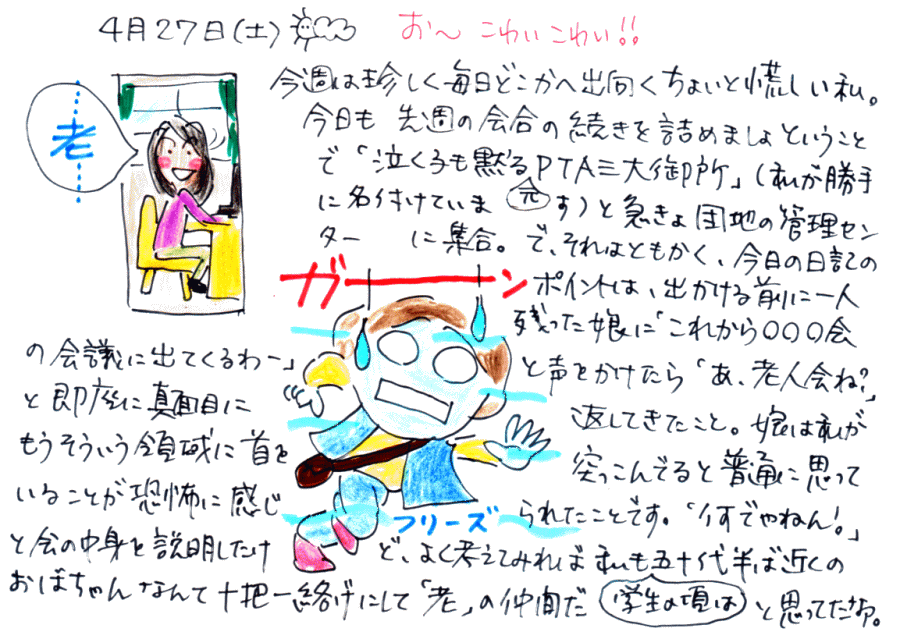 4月27日(土) お～ こわいこわい!!
今週は珍しく毎日どこかへ出向くちょいと慌しい私。
老
今日も 先週の会合の続きを詰めましょということ
で「泣く子も黙るPTA三大御所」(私が勝手
に名付けていま 元 す)と急きょ団地の管理セン
ター に集合。で、それはともかく、今日の日記の
ガーン
ポイントは、出かける前に一人
残った娘に「これから〇〇〇会
の会議に出てくるわー」
と声をかけたら「あ、老人会ね?」
と即座に真面目に
返してきたこと。娘は私が
もうそういう領域に首を
突っこんでると普通に思って
いることが恐怖に感じ
られたことです。「何でやねん!」
フリーズ
と会の中身を説明したけ ど、よく考えてみれば私も五十代半ば近くの
おばちゃんなんて十把一絡げにして「老」の仲間だ 学生の頃は と思ってたな。